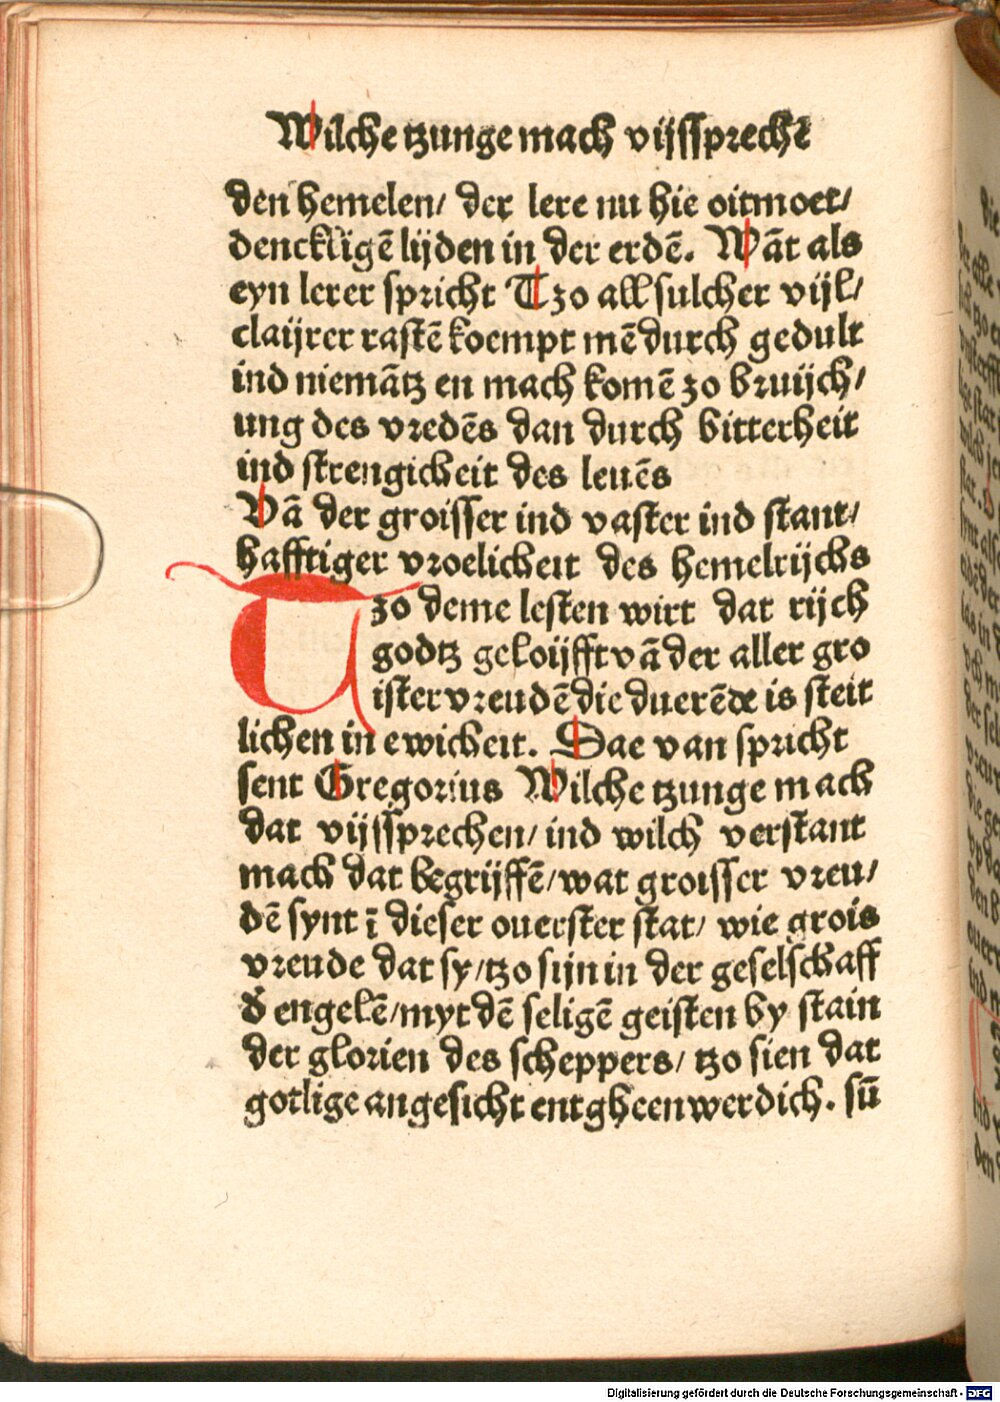 Wilche tzunge mach vijssprechē
den hemelen/ der lere nu hie oitmoet/
dencklïgē lijden in der erdē. Wāt als
eyn lerer spricht Tzo all sulcher vijl/
claijrer rastē koempt mē durch gedult
ind niemātz en mach komē zo bruijch/
ung des vredēs dan durch bitterheit
ind strengicheit des leuēs
Vā der groisser ind vaster ind stant/
hafftiger vroelicheit des hemelrijchs
Tzo deme lesten wirt dat rijch
godtz geloijfft vā der aller gro
ister vreudē die duerēde is steit
lichen in ewicheit. Dae van spricht
sent Gregorius Wilche tzunge mach
dat vijssprechen/ ind wilch verstant
mach dat begrijffē/ wat groisser vreu/
dē synt ī dieser ouerster stat/ wie grois
vreude dat sy/ tzo sijn in der geselschaff
d̄ engelē/ myt dē seligē geisten by stain
der glorien des scheppers/ tzo sien dat
gotlige angesicht entgheenwerdich. sū
Digitalisierung gefördert durch die Deutsche Forschungsgemeinschaft - DFG